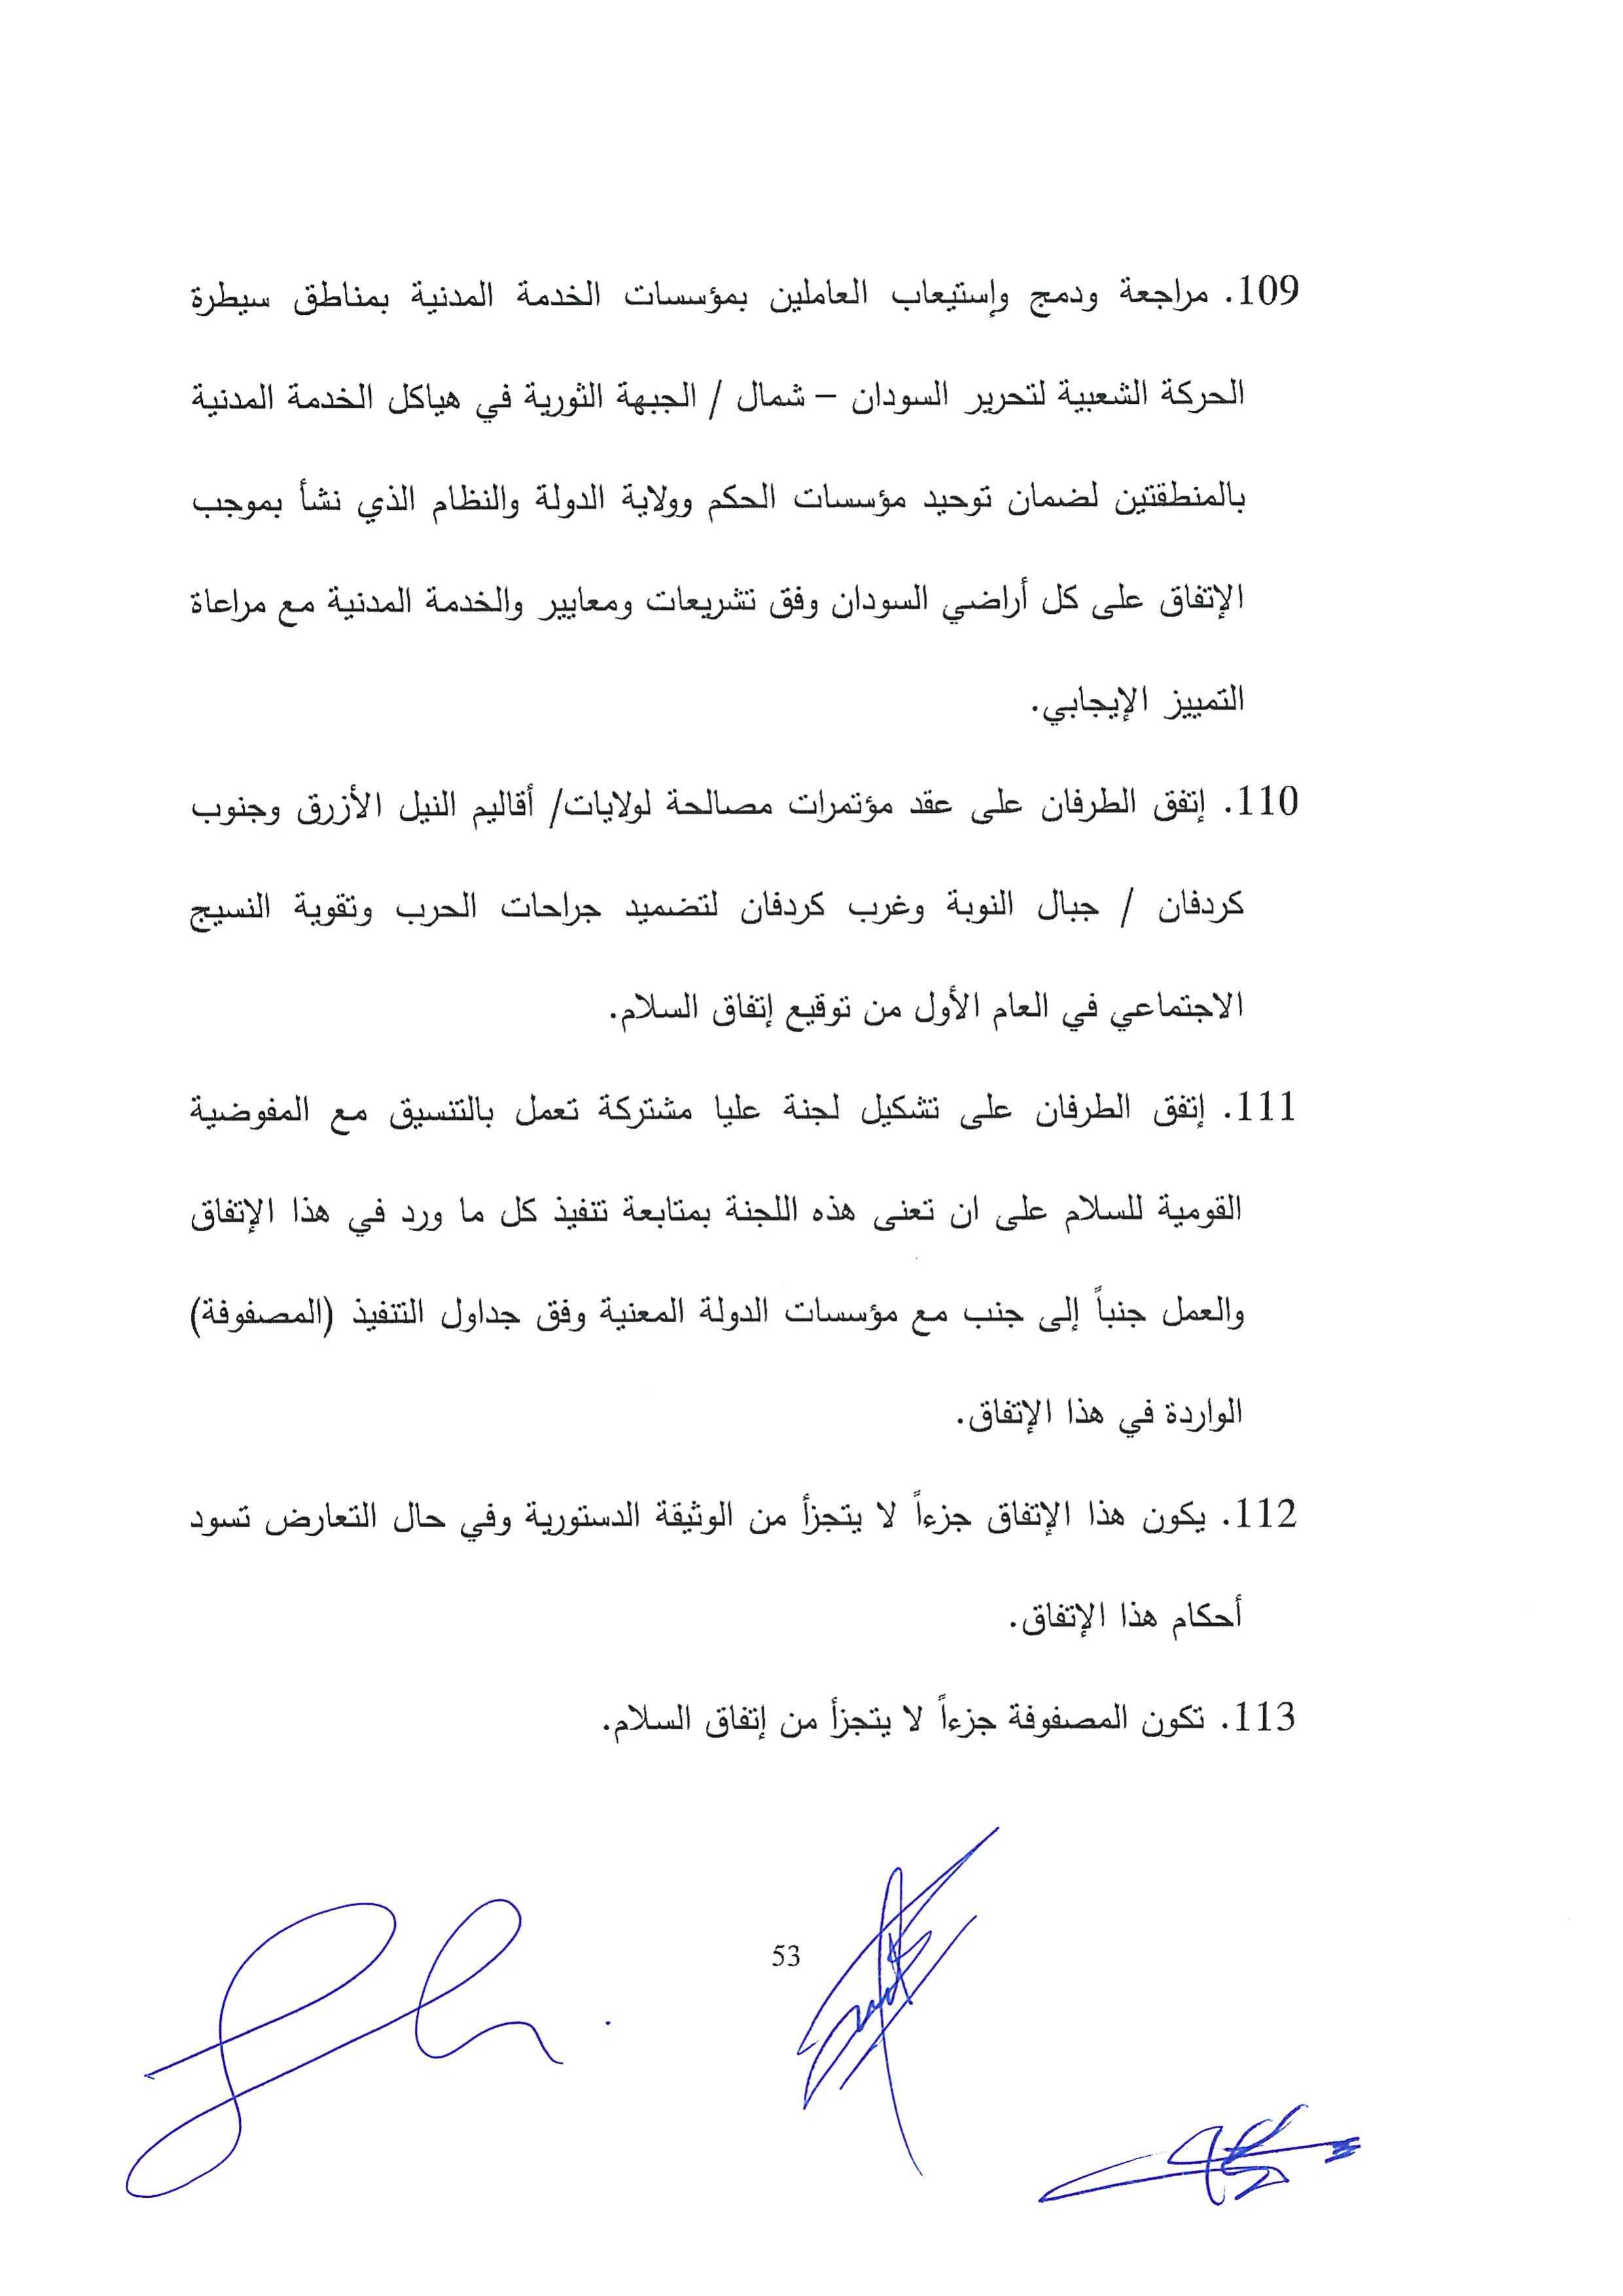 109. مراجعة ودمج وإستيعاب العاملين بمؤسسات الخدمة المدنية بمناطق سيطرة
الحركة الشعبية لتحرير السودان – شمال / الجبهة الثورية في هياكل الخدمة المدنية
بالمنطقتين لضمان توحيد مؤسسات الحكم وولاية الدولة والنظام الذي نشأ بموجب
الإتفاق على كل أراضي السودان وفق تشريعات ومعايير والخدمة المدنية مع مراعاة
التمييز الإيجابي.
110. إتفق الطرفان على عقد مؤتمرات مصالحة لولايات/ أقاليم النيل الأزرق وجنوب
كردفان / جبال النوبة وغرب كردفان لتضميد جراحات الحرب وتقوية النسيج
الاجتماعي في العام الأول من توقيع إتفاق السلام.
111. إتفق الطرفان على تشكيل لجنة عليا مشتركة تعمل بالتنسيق مع المفوضية
القومية للسلام على ان تعنى هذه اللجنة بمتابعة تنفيذ كل ما ورد في هذا الإتفاق
والعمل جنباً إلى جنب مع مؤسسات الدولة المعنية وفق جداول التنفيذ (المصفوفة)
الواردة في هذا الإتفاق.
112. يكون هذا الإتفاق جزءاً لا يتجزأ من الوثيقة الدستورية وفي حال التعارض تسود
أحكام هذا الإتفاق.
113. تكون المصفوفة جزءاً لا يتجزأ من إتفاق السلام.
53